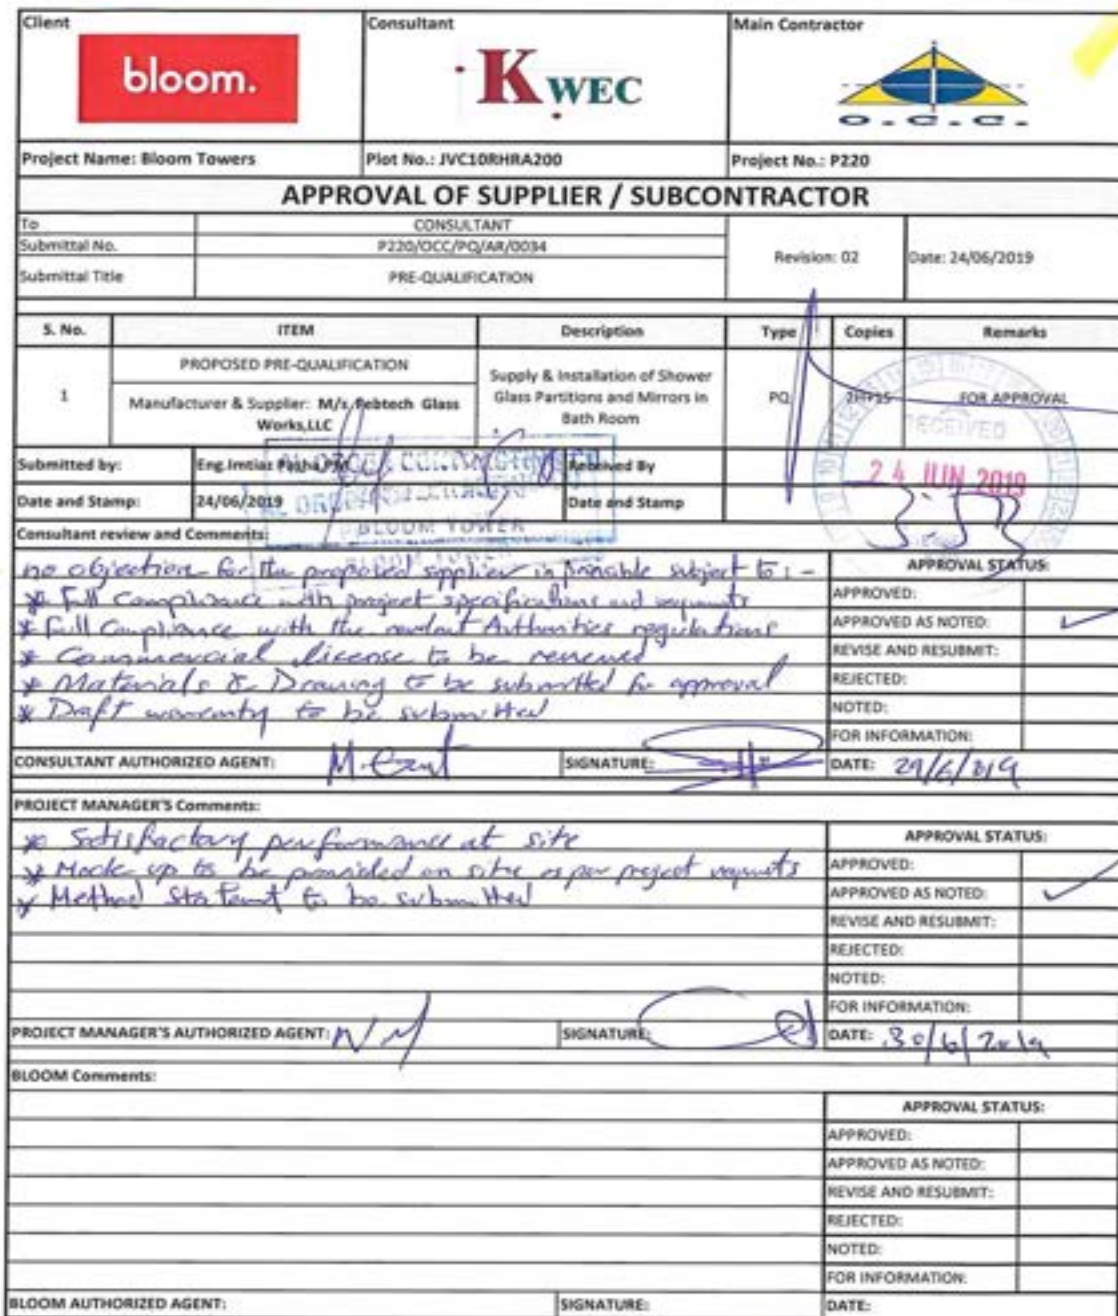 Client
bloom.
Consultant
KWEC
Main Contractor
O.C.C.
Project Name: Bloom Towers
Plot No.: JVC10RHRA200
Project No.: P220
APPROVAL OF SUPPLIER / SUBCONTRACTOR
To
CONSULTANT
Submittal No.
P220/OCC/PQ/AR/0034
Submittal Title
PRE-QUALIFICATION
Revision: 02
Date: 24/06/2019
S. No.
ITEM
Description
Type
Copies
Remarks
1
PROPOSED PRE-QUALIFICATION
Manufacturer & Supplier: M/s Febtech Glass
Works,LLC
Supply & Installation of Shower
Glass Partitions and Mirrors in
Bath Room
PQ
FOR APPROVAL
RECEIVED
24 JUN 2019
Submitted by:
Eng.Imtiaz Pasha,PM
Received By
Date and Stamp:
24/06/2019
Date and Stamp
BLOOM TOWER
Consultant review and Comments:
no objection for the proposed supplier in subject to : -
* Full Compliance with project specifications and
* Full Compliance with the Authorities regulations
* Commercial license to be renewed
* Materials & Drawing to be submitted for approval
* Draft warranty to be submitted
APPROVAL STATUS:
APPROVED:
APPROVED AS NOTED:
REVISE AND RESUBMIT:
REJECTED:
NOTED:
FOR INFORMATION:
CONSULTANT AUTHORIZED AGENT:
SIGNATURE:
DATE: 29/6/2019
PROJECT MANAGER'S Comments:
* Satisfactory performance at site
* Mock up to be provided on site as per project
* Method to be submitted
APPROVAL STATUS:
APPROVED:
APPROVED AS NOTED:
REVISE AND RESUBMIT:
REJECTED:
NOTED:
FOR INFORMATION:
PROJECT MANAGER'S AUTHORIZED AGENT:
SIGNATURE:
DATE: 30/6/2019
BLOOM Comments:
APPROVAL STATUS:
APPROVED:
APPROVED AS NOTED:
REVISE AND RESUBMIT:
REJECTED:
NOTED:
FOR INFORMATION:
BLOOM AUTHORIZED AGENT:
SIGNATURE:
DATE: